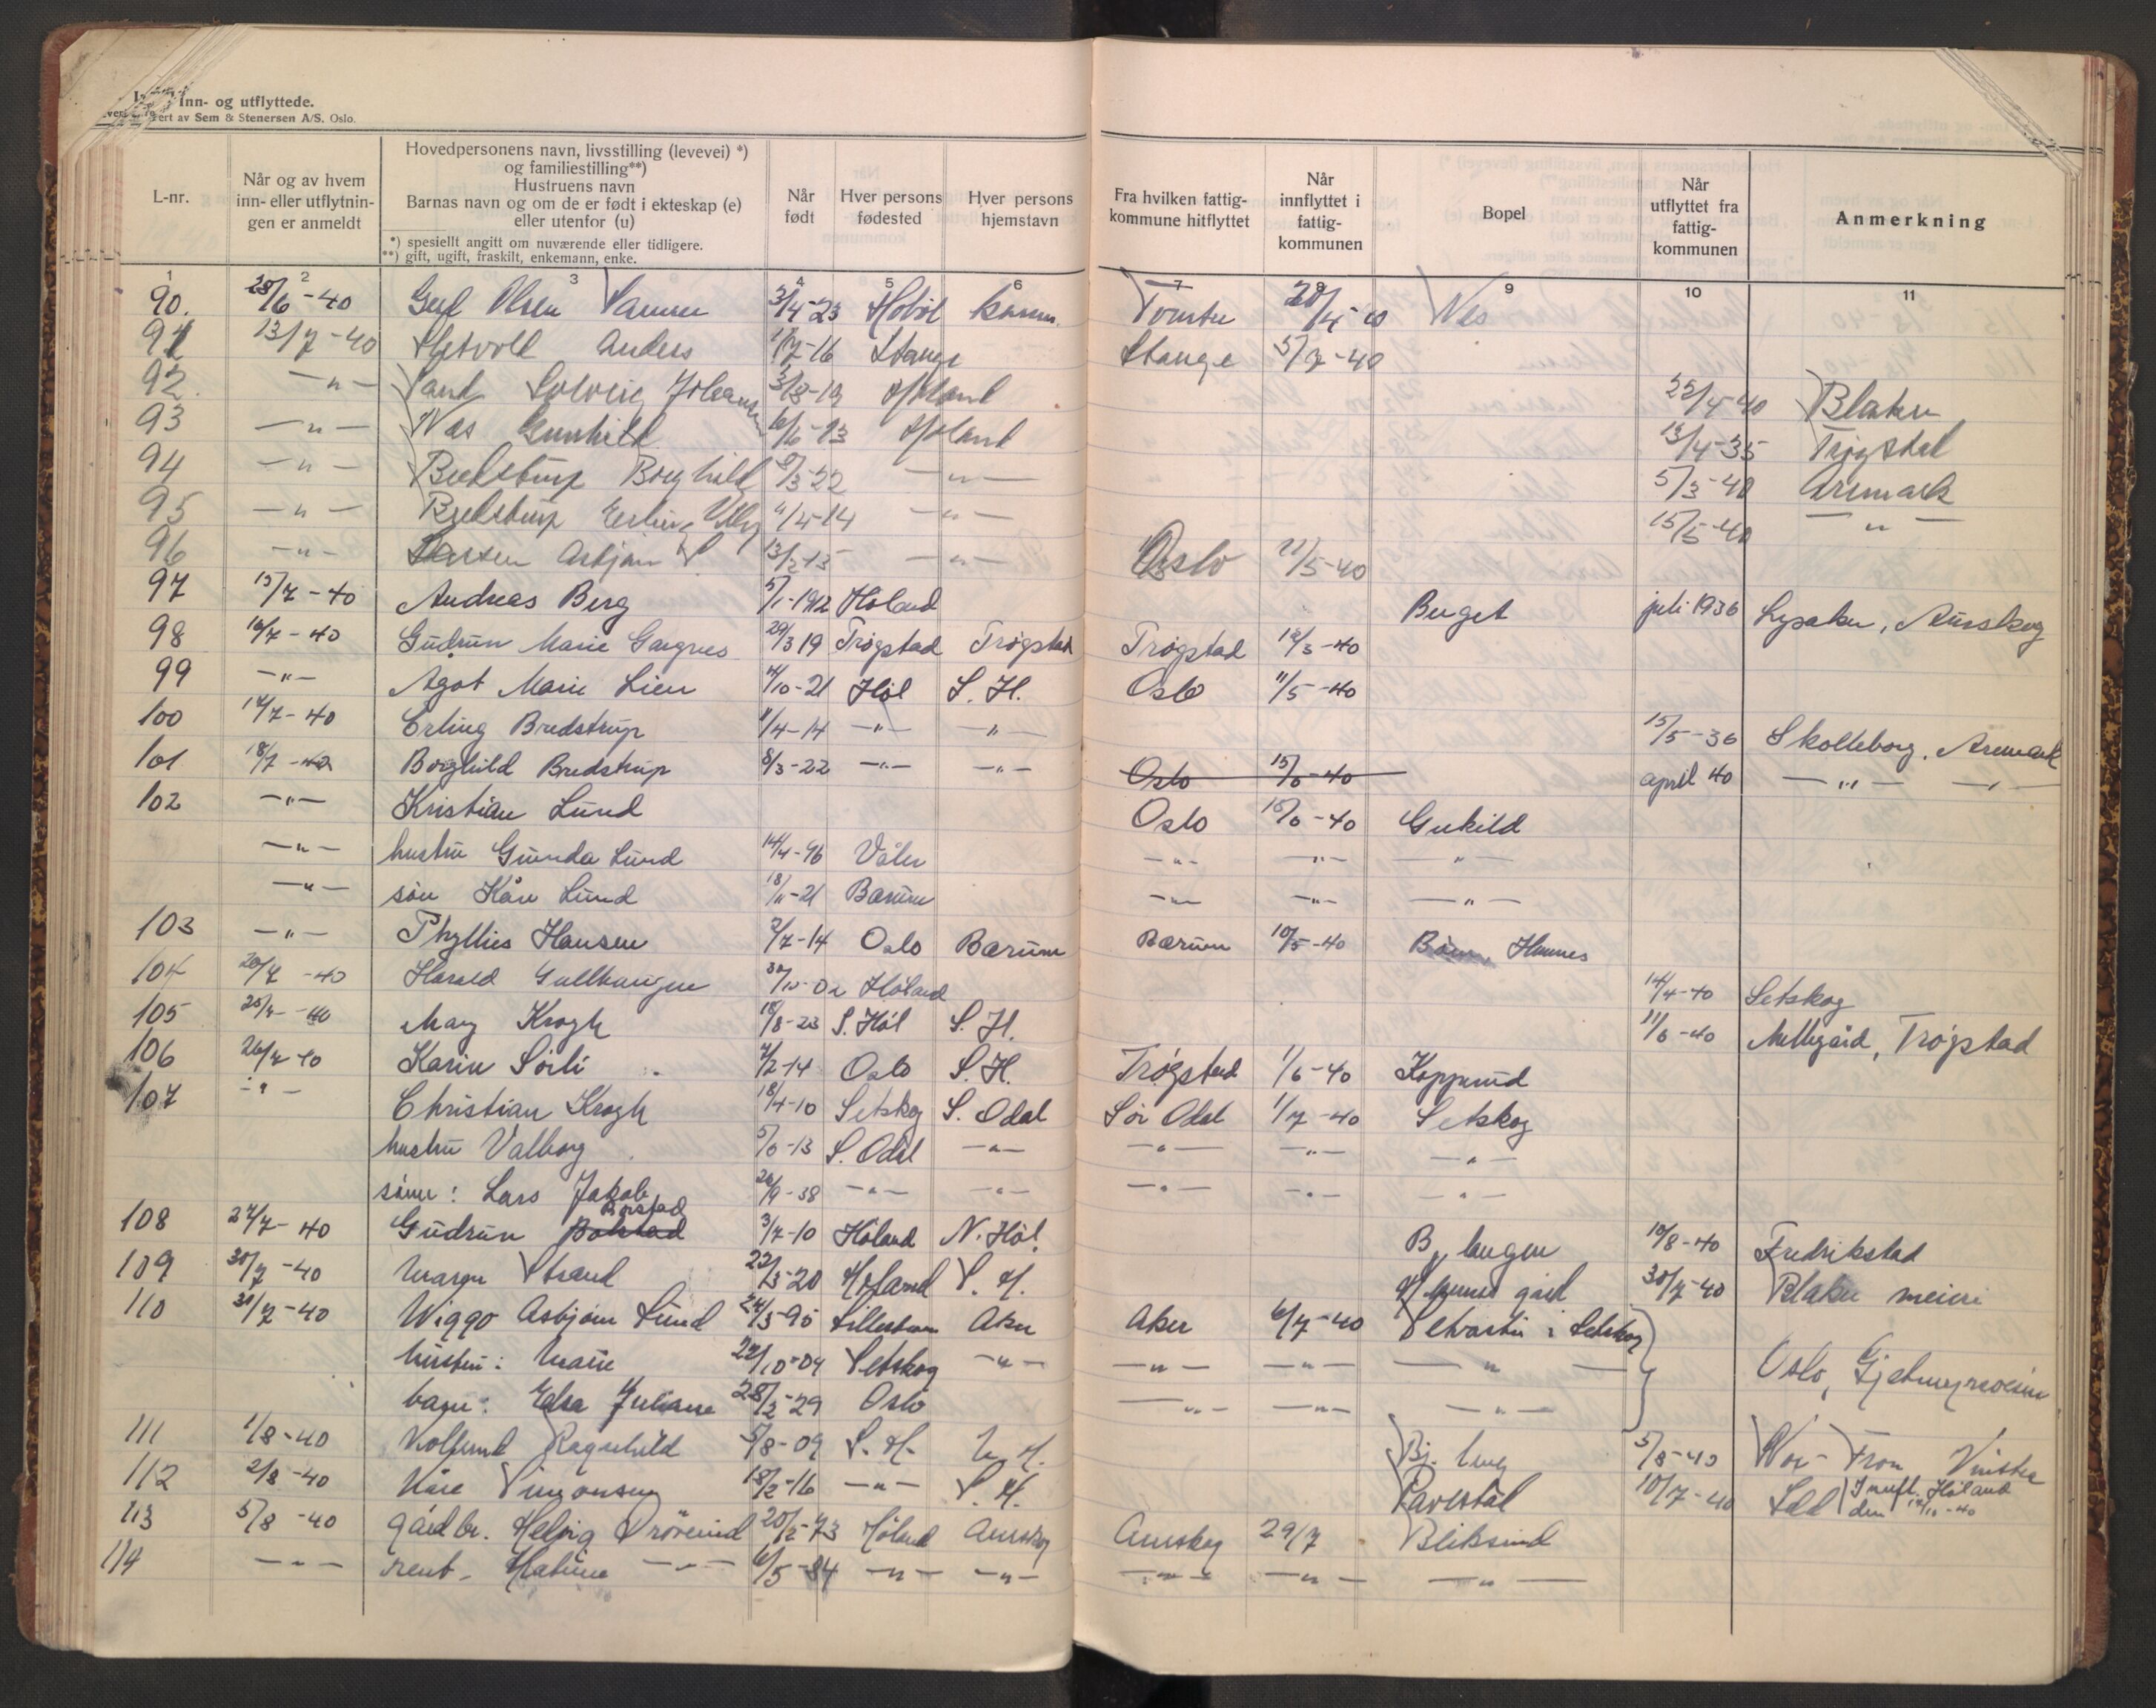 Inn- og utflyttede.
Sem & Stenersen A/S. Oslo.
L-nr. | Når og av hvem inn- eller utflytningen er anmeldt | Hovedpersonens navn, livsstilling (levevei) *) og familiestilling**) Hustruens navn Barnas navn og om de er født i ekteskap (e) eller utenfor (u) | Når født | Hver persons fødested | Hver persons hjemstavn | Fra hvilken fattigkommune hitflyttet | Når innflyttet i fattigkommunen | Bopel | Når utflyttet fra fattigkommunen | Anmerkning
*) spesiellt angitt om nuværende eller tidligere.
**) gift, ugift, fraskilt, enkemann, enke.
1 2 3 4 5 6 7 8 9 10 11
90. 28/6-40 Olsen 3/4-23 Hobøl Tomter 28/4-40 Nes
91 13/7-40 Anders 16 Stange Stange 5/7-40
92. -"- Sand Solveig Johanne 19 Høland 22/4-40 Blaker
93 -"- Næs Gunhild 6/6-13 Høland 13/4-35 Trøgstad
94 -"- Bredstrup Borghild 8/3-22 -"- 5/3-40 Aremark
95 -"- Bredstrup Erling 11/4-14 -"- 15/5-40 -"-
96 -"- Larsen Asbjørn 13/2-15 -"- Oslo 21/5-40
97 15/7-40 Andreas Berg 5/1-1912 Høland juli 1936 Lysaker, Aurskog
98 16/7-40 Gudrun Marie 29/3 19 Trøgstad Trøgstad Trøgstad 16/3-40
99 -"- Agot Marie Lien 4/10-21 Høl S. H. Oslo 11/5-40
100 17/7-40 Erling Bredstrup 11/4-14 -"- -"- 15/5-36 Skolleborg, Aremark
101 18/7-40 Borghild Bredstrup 8/3-22 -"- -"- Oslo 15/6-40 april 40 -"- -"-
102 -"- Kristian Lund Oslo 15/6-40 Gukild
-"- hustru Gunda Lund 14/4-96 Våler -"- -"- -"-
-"- søn Kåre Lund 18/11-21 Bærum -"- -"- -"-
103 -"- Phyllies Hansen 2/7-14 Oslo Bærum Bærum 10/5-40 Hemnes
104 20/7-40 Harald Gullhaugen 30/10-02 Høland 14/4-40 Setskog
105 25/7-40 Mary Krogh 18/8-23 S. Høl S. H. 11/6-40 Mellegård, Trøgstad
106 26/7-40 Karin Sørli 4/2-14 Oslo S. H. Trøgstad 1/6-40 Kopperud
107 -"- Christian Krogh 18/4-10 Setskog S. Odal Sør Odal 1/7-40 Setskog
hustru Valborg 5/6-13 S. Odal -"- -"- -"- -"-
sønn: Lars Jakob 26/9-38 -"- -"- -"- -"- -"-
Børstad
108 27/7-40 Gudrun Bolstad 3/7-10 Høland N. Høl. 10/8-40 Fredrikstad
109 30/7-40 Margn Strand 22/3-20 Høland S. H. Hemnes gård 30/7-40 Blaker meieri
110 31/7-40 Wiggo Asbjørn Lund 24/3-95 Lillestrøm Aker Aker 6/7-40 i Setskog
hustru: Marie 22/10-04 Setskog -"- -"- -"- -"- Oslo,
barn: Elsa Juliane 28/2-29 Oslo -"- -"- -"-
111 1/8-40 Ragnhild 5/8-09 S. H. 5/8-40 Fron Vinstra
112 2/8-40 Kåre Simonsen 18/2-16 -"- S. H. 10/7-40 Innfl. Høland
den 12/10-40
113 5/8-40 gårdbr. Helvig 20/2-73 Høland Aurskog Aurskog 29/7 Bliksrud
114 -"- Matine -"- 6/5-84 -"- -"- -"- -"- -"-